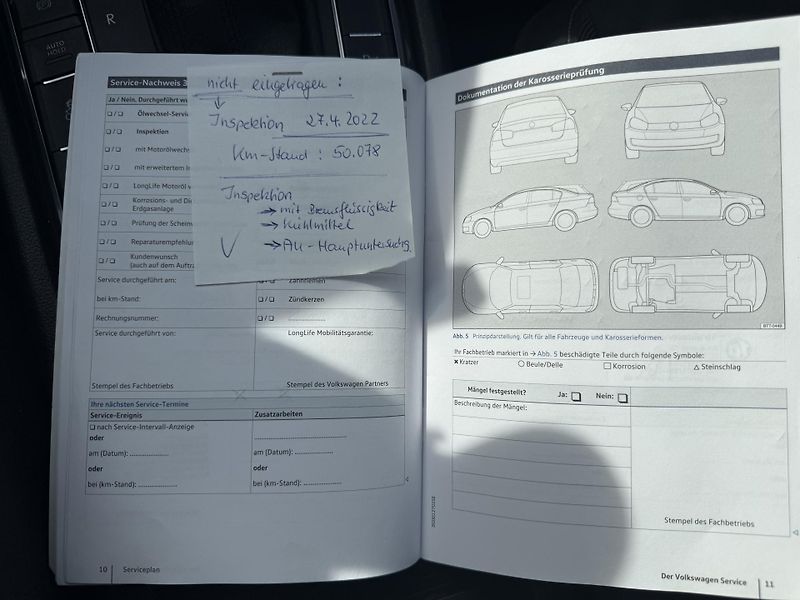 R
AUTO
HOLD
Service-Nachweis 3
nicht eingetragen :
↓
Inspektion 27.4.2022
Km-Stand : 50.078
Inspektion
→ mit Bremsflüssigkeit
→ Kühlmittel
√ → AU-Hauptuntersuchg
Ja / Nein. Durchgeführt
❑ / ❑ Ölwechsel-Servic
❑ / ❑ Inspektion
❑ / ❑ mit Motorölwechs
❑ / ❑ mit erweitertem I
❑ / ❑ LongLife Motoröl
❑ / ❑ Korrosions- und
Erdgasanlage
❑ / ❑ Prüfung der Schein
❑ / ❑ Reparaturempfehlu
❑ / ❑ Kundenwunsch
(auch auf dem Auftra
Service durchgeführt am: ❑ / ❑ Zahnriemen
bei km-Stand: ❑ / ❑ Zündkerzen
Rechnungsnummer: ❑ / ❑ ....................
Service durchgeführt von: LongLife Mobilitätsgarantie:
Stempel des Fachbetriebs Stempel des Volkswagen Partners
Ihre nächsten Service-Termine
Service-Ereignis Zusatzarbeiten
❑ nach Service-Intervall-Anzeige
oder ....................
am (Datum): .................... am (Datum): ....................
oder oder
bei (km-Stand): .................... bei (km-Stand): ....................
10 Serviceplan
Dokumentation der Karosserieprüfung
B7T-0449
Abb. 5 Prinzipdarstellung. Gilt für alle Fahrzeuge und Karosserieformen.
Ihr Fachbetrieb markiert in → Abb. 5 beschädigte Teile durch folgende Symbole:
× Kratzer ○ Beule/Delle □ Korrosion △ Steinschlag
Mängel festgestellt? Ja: ❑ Nein: ❑
Beschreibung der Mängel:
Stempel des Fachbetriebs
Der Volkswagen Service 11